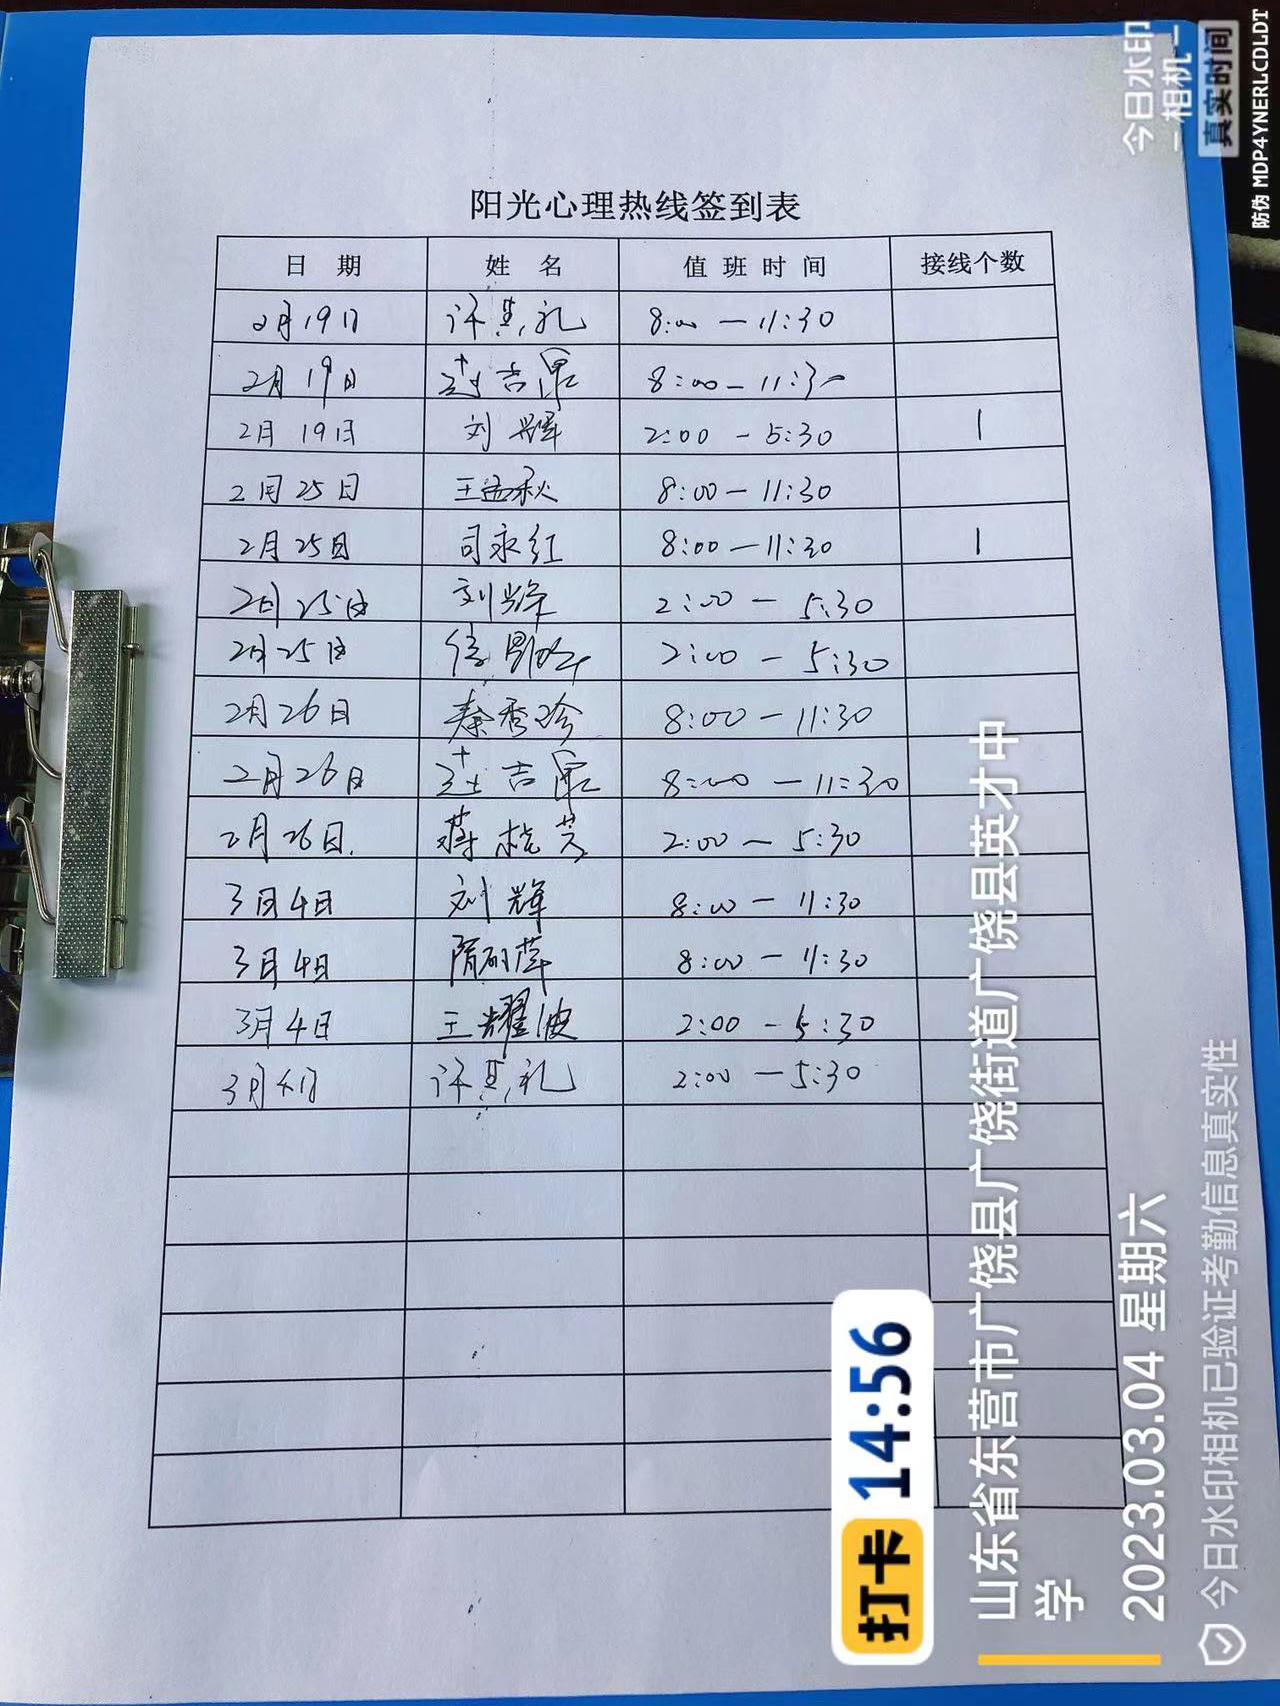 阳光心理热线签到表
日 期 姓 名 值 班 时 间 接线个数
2月19日 8:00 — 11:30
2月19日 8:00 — 11:30
2月19日 刘辉 2:00 — 5:30 1
2月25日 王孟秋 8:00 — 11:30
2月25日 司永红 8:00 — 11:30 1
2月25日 刘辉 2:00 — 5:30
2月25日 2:00 — 5:30
2月26日 秦秀珍 8:00 — 11:30
2月26日 8:00 — 11:30
2月26日. 蒋桂芝 2:00 — 5:30
3月4日 刘辉 8:00 — 11:30
3月4日 8:00 — 11:30
3月4日 王耀波 2:00 — 5:30
3月4日 2:00 — 5:30
打卡 14:56
山东省东营市广饶县广饶街道广饶县英才中
学
2023.03.04 星期六
今日水印相机已验证考勤信息真实性
今日水印
相机
真实时间
防伪 MDP4YNERLCDLDT